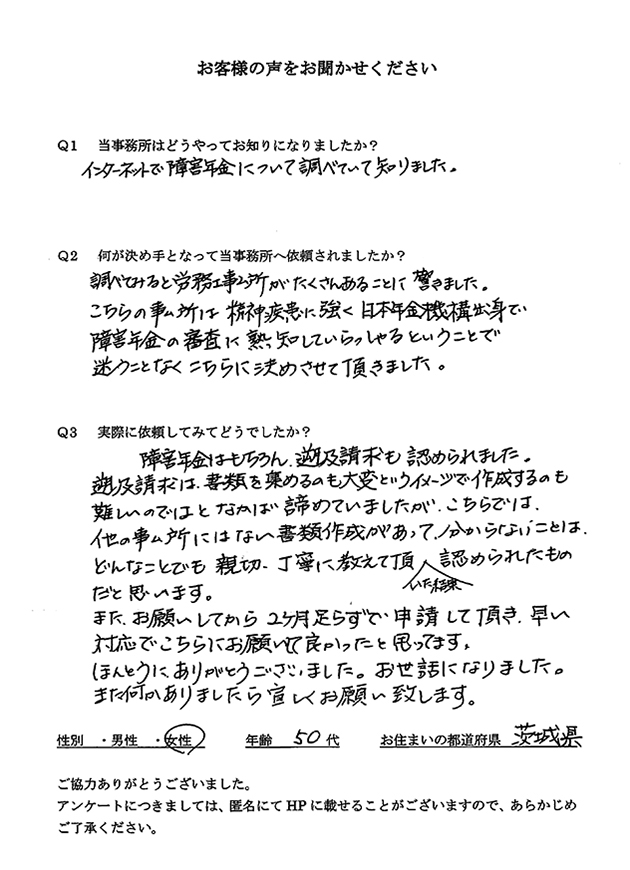 お客様の声をお聞かせください
Q1 当事務所はどうやってお知りになりましたか？
インターネットで障害年金について調べていて知りました。
Q2 何が決め手となって当事務所へ依頼されましたか？
調べてみると労務士事ム所がたくさんあることに驚きました。
こちらの事ム所は精神疾患に強く日本年金機構出身で
障害年金の審査に熟知していらっしゃるということで
迷うことなくこちらに決めさせて頂きました。
Q3 実際に依頼してみてどうでしたか？
障害年金はもちろん、遡及請求も認められました。
遡及請求は、書類を集めるのも大変というイメージで作成するのも
難しいのではとなかば諦めていましたが、こちらでは、
他の事ム所にはない書類作成があって、分からないことは、
どんなことでも親切、丁寧に教えて頂いた結果認められたもの
だと思います。
また、お願いしてから2ヶ月足らずで申請して頂き、早い
対応でこちらにお願いして良かったと思ってます。
ほんとうにありがとうございました。お世話になりました。
また何かありましたら宜しくお願い致します。
性別 ・男性 ・女性 年齢 50代 お住まいの都道府県 茨城県
ご協力ありがとうございました。
アンケートにつきましては、匿名にてHPに載せることがございますので、あらかじめ
ご了承ください。